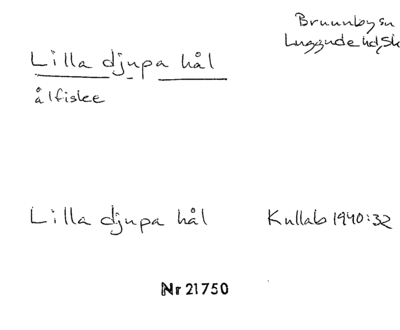 Brunnby sn
Luggude hd, Sk
Lilla djupa hål
ålfiske
Lilla djupa hål
Kullab 1940:32
Nr 21750